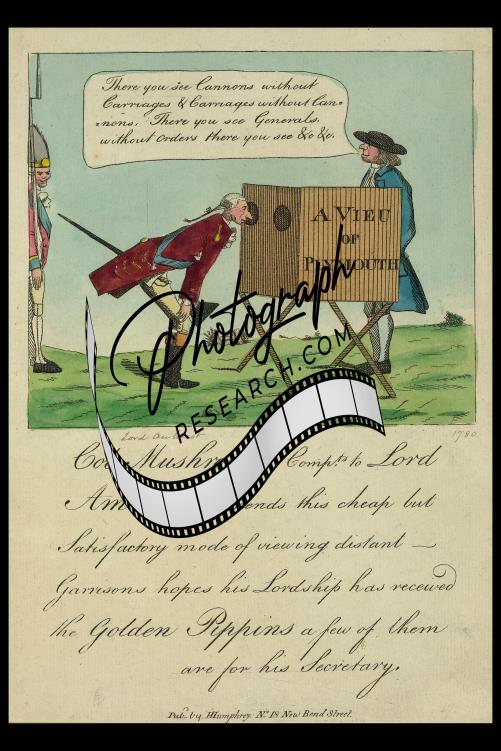 There you see Cannons without
Carriages & Carriages without Can=
=nons, There you see Generals
without Orders there you see &c &c.
A VIEU
OF
PLYMOUTH
Photograph
RESEARCH.COM
Lord
1780
Comp.ts to Lord
this cheap but
Satisfactory mode of viewing distant —
Garrisons hopes his Lordship has received
the Golden Pippins a few of them
are for his Secretary.
Pub. by HHumphrey No. 18 New Bond Street.